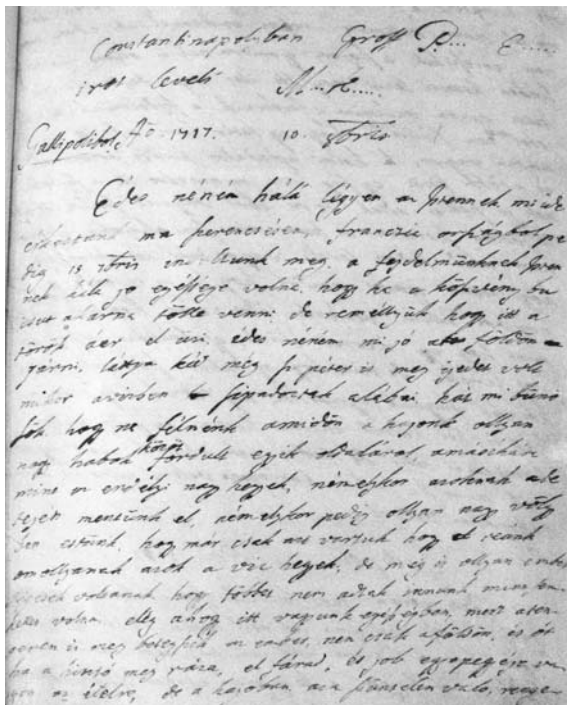 Constantinapolyban Groff P... E.....
irot levelei M...K.....
Gallipolibol, Ao 1717. 10. 8bris
Édes néném hála légyen az Istennek mi ide
érkeztünk ma szerencsésen, francziaországbol pe
dig 15 7bris indultunk meg, a fejdelmünknek Isten
nek hála jo egésége volna, hogy ha a köszvény bu
csut akarna tölle venni, de reméllyük hogy itt a
török áer el üzi, édes néném mi jo a földön
járni, láttya kéd még sz péter is meg ijedet volt
mikor a vizben sipadoztak alábai, hát mi bünö
sök hogy ne félnénk amidön a hajonk ollyan
nagy habok közöt fordult egyik oldaláról amásikára
mint az erdélyi nagy hegyek, némelykor azoknak a te
tején mentünk el, némelykor pedig ollyan nagy völgy
ben estünk, hogy már csak azt vártuk hogy reánk
omollyanak azok a viz hegyek, de még is ollyan embe
voltanak hogy többet nem adtak innunk mint sem
kellet volna, elég a hogy itt vagyunk egéségben, mert a ten
geren is meg betegszik az ember, nem csak a földön, és ot
ha a hinto meg rázza, el fárad, és job egy
az ételre, de a hajoban az a szüntelen valo